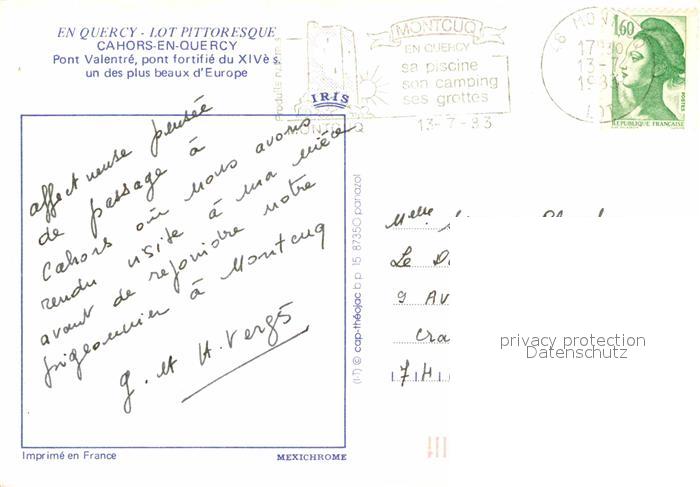 EN QUERCY - LOT PITTORESQUE
CAHORS-EN-QUERCY
Pont Valentré, pont fortifié du XIVè s.
un des plus beaux d'Europe
Produits
IRIS
MONTCUQ
MONTCUQ
EN QUERCY
sa piscine
son camping
ses grottes
13-7-83
46 MONTCUQ
17H
13-7
LOT
1,60
POSTES
REPUBLIQUE FRANÇAISE
affectueuse pensée
de passage à
Cahors où nous avons
rendu visite à ma nièce
avant de rejoindre notre
pigeonnier à Montcuq
g. et H. Vergès
(I-T) © cap-théojac b p 15 87350 panazol
Melle
Le
9 Av
Cra
privacy protection
Datenschutz
Imprimé en France
MEXICHROME